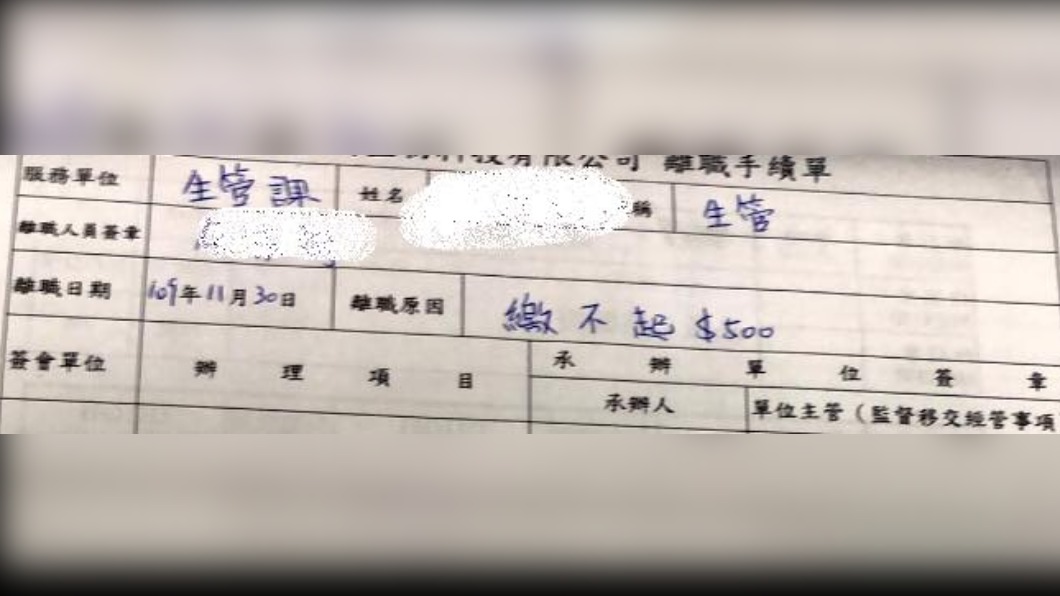 科技有限公司 離職手續單
服務單位 生管課 姓名 稱 生管
離職人員簽章
離職日期 109年11月30日 離職原因 繳不起$500
簽會單位 辦理項目 承辦單位簽章
承辦人 單位主管(監督移交經管事項